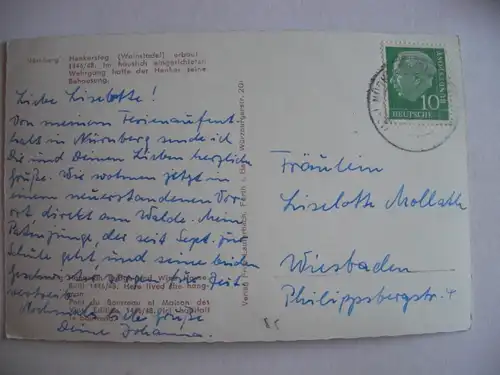 Nürnberg Henkersteg (Weinstadel) erbaut
1446/48. Im häuslich eingerichteten
Wehrgang hatte der Henker seine
Behausung.
Liebe Liselotte!
Von meinem Ferienaufent
halt in Nürnberg sende ich
Dir und Deinen Lieben herzliche
Grüße. Wir wohnen jetzt in
einem neuerstandenen Vor
ort, direkt am Walde. Mein
Patenjunge, der seit Sept. zur
Schule geht und seine beiden
Geschwister die Zeit
Nochmals liebe Grüße
Deine Johanna.
Built 1446/48. Here lived the hang-
man
Pont du Bourreau et Maison des
Verlag Fürth i. Bay. Würzburgerstr.
10
DEUTSCHE
BUNDESPOST
Fräulein
Liselotte Mollath
Wiesbaden
Philippsbergstr. 4